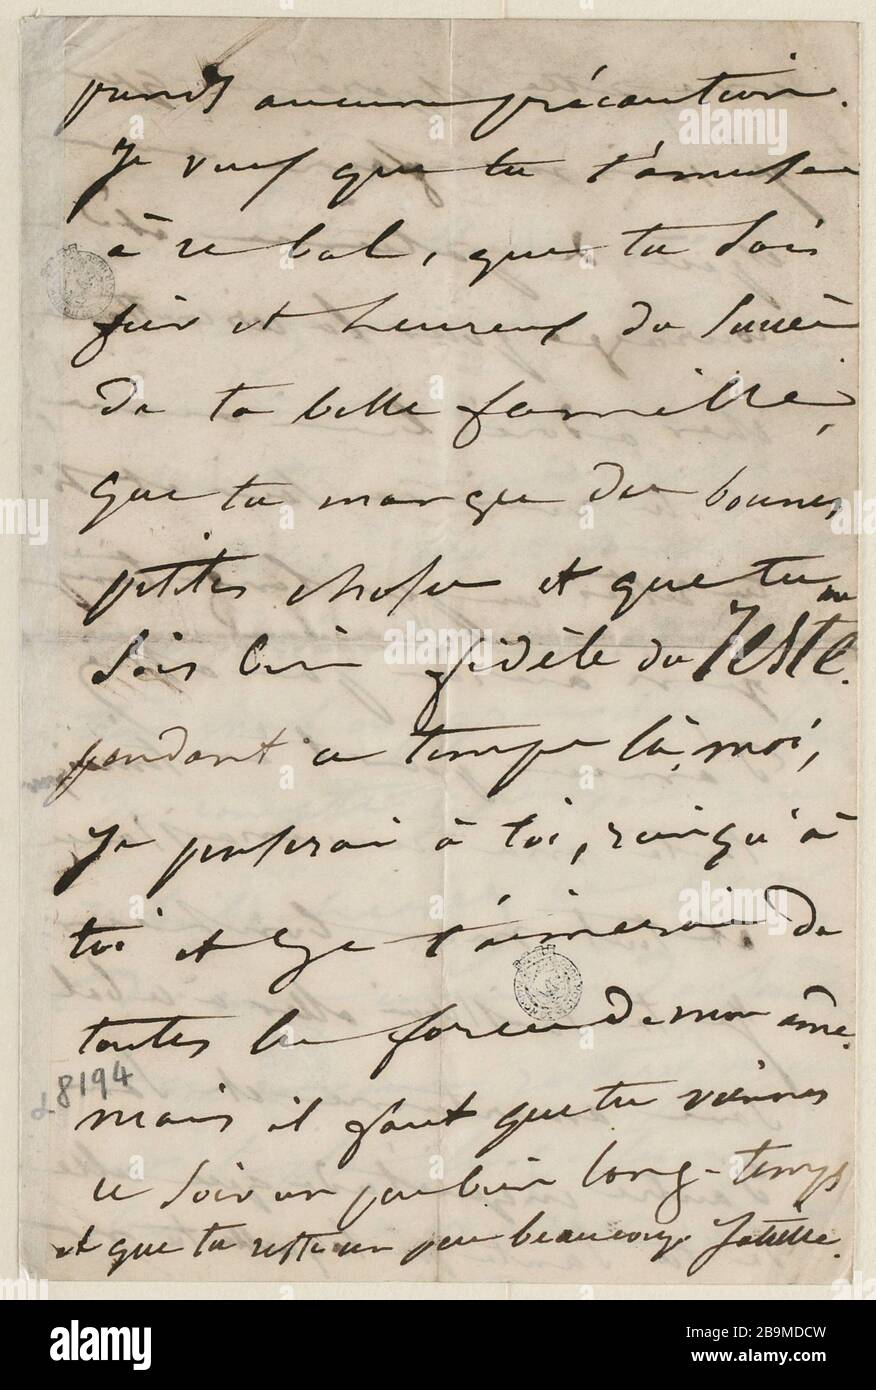 prends aucune précaution.
Je veux que tu t'amuses
à ce bal, que tu sois
fier et heureux du succès
de ta belle famille,
que tu manges de bonnes
petites choses et que tu me
sois bien fidèle du reste.
pendant ce temps là, moi,
je penserai à toi, rien qu'à
toi et je t'aimerai de
toutes les forces de mon âme.
mais il faut que tu viennes
ce soir un peu bien long-temps
et que tu restes un peu beaucoup. Juliette.
8194
alamy
Image ID: 2B9MDCW
www.alamy.com